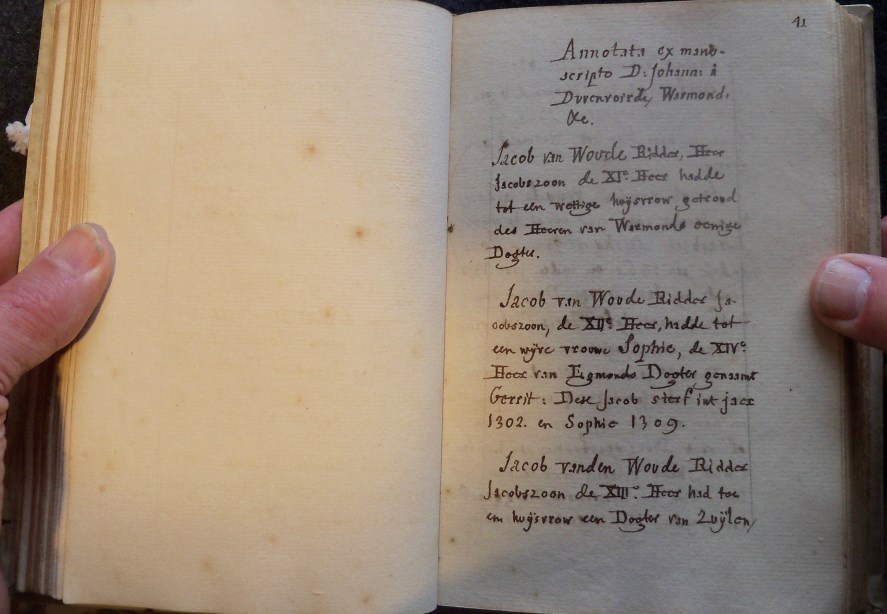 41
Annotata ex manu-
scripto D: Johann: à
Duvenvoirde, Warmond.
&c.
Jacob van Woude Ridder, Heer
Jacobszoon de XIe Heer hadde
tot een wettige huÿsvrow getrond
des Heeren van Warmonds eenige
Dogter.
Jacob van Woude Ridder Ja-
cobszoon, de XIIe Heer, hadde tot
een wÿve vrouwe Sophie, de XIVe
Heer van Eigmonds Dogter genaamt
Gerrit: Dese Jacob sterf int jaer
1302. en Sophie 1309.
Jacob vanden Woude Ridder
Jacobszoon de XIIIe Heer had toe
een huÿsvrow een Dogter van Zuÿlen,